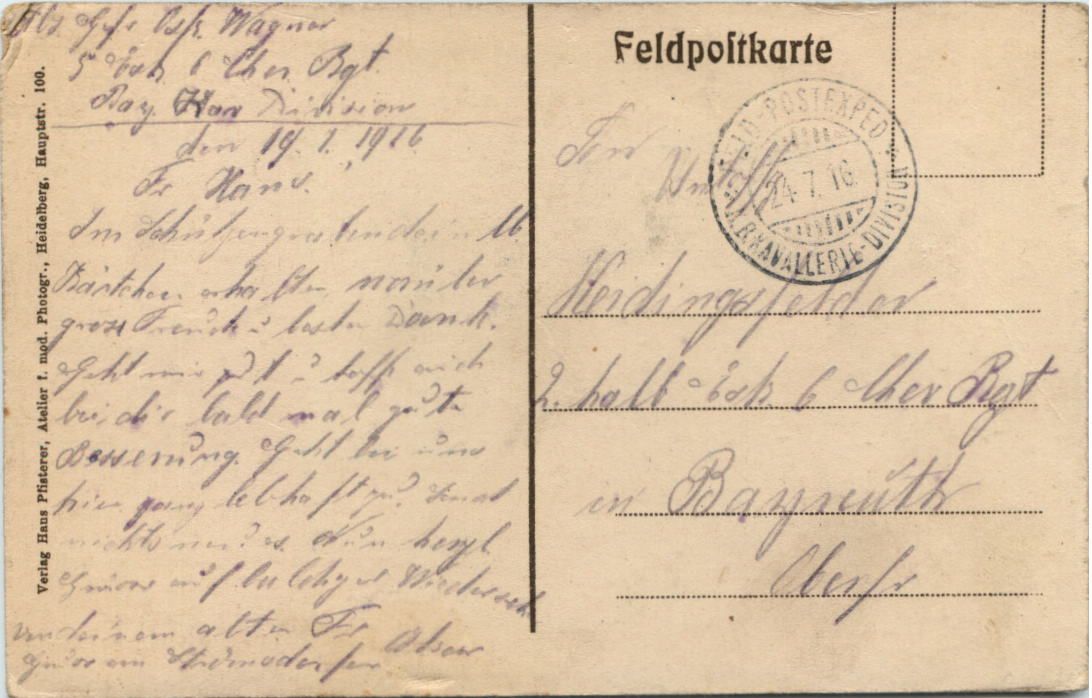 Abs. Gefr Osk. Wagner
5 Esk 6 Chev. Rgt.
Bay. Kav Division
den 19. 7. 1916.
Fr Hans.
Im Schützengraben dein lb.
Kärtchen erhalten,
gross Freude u besten Dank.
Geht mir gut u hoff auch
bei dir bald mal gute
Besserung. Geht bei uns
hier ganz lebhaft zu. Sonst
nichts neues. Nun herzl
Grüsse auf baldiges Wiederseh.
von deinem alten Fr Oskar
Verlag Hans Pfisterer, Atelier f. mod. Photogr., Heidelberg, Hauptstr. 100.
Feldpostkarte
FELD-POSTEXPED.
24.7.16
KAVALLERIE-DIVISION
Heidingsfelder
2. halb Esk 6 Chev Rgt
in Bayreuth
Oberfr